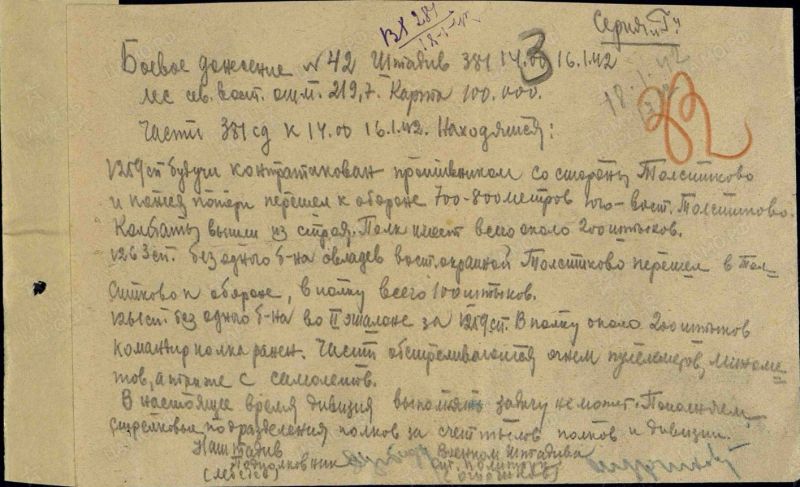 Серия "Г"
Вх 281
18.1.42
Боевое донесение №42 Штадив 381 14.00 16.1.42
3
лес сев. вост. отм. 219,7. Карта 100.000.
18.1.42
Части 381 сд к 14.00 16.1.42. Находятся:
1259 сп будучи контратакован противником со стороны Толстиково
и понеся потери перешел к обороне 700-800 метров юго-вост. Толстиково.
Комбаты вышли из строя. Полк имеет всего около 200 штыков.
1263 сп. без одного б-на овладев вост. окраиной Толстиково перешел в Тол-
стиково к обороне, в полку всего 100 штыков.
1261 сп без одного б-на во II эшалоне за 1259 сп. В полку около 200 штыков
командир полка ранен. Части обстреливаются огнем пулеметов, миноме
тов, а также с самолетов.
В настоящее время дивизия выполнять задачу не может. Пополняем
стрелковые подразделения полков за счет тылов полков и дивизии.
Наштадив Военком Штадива
Подполковник